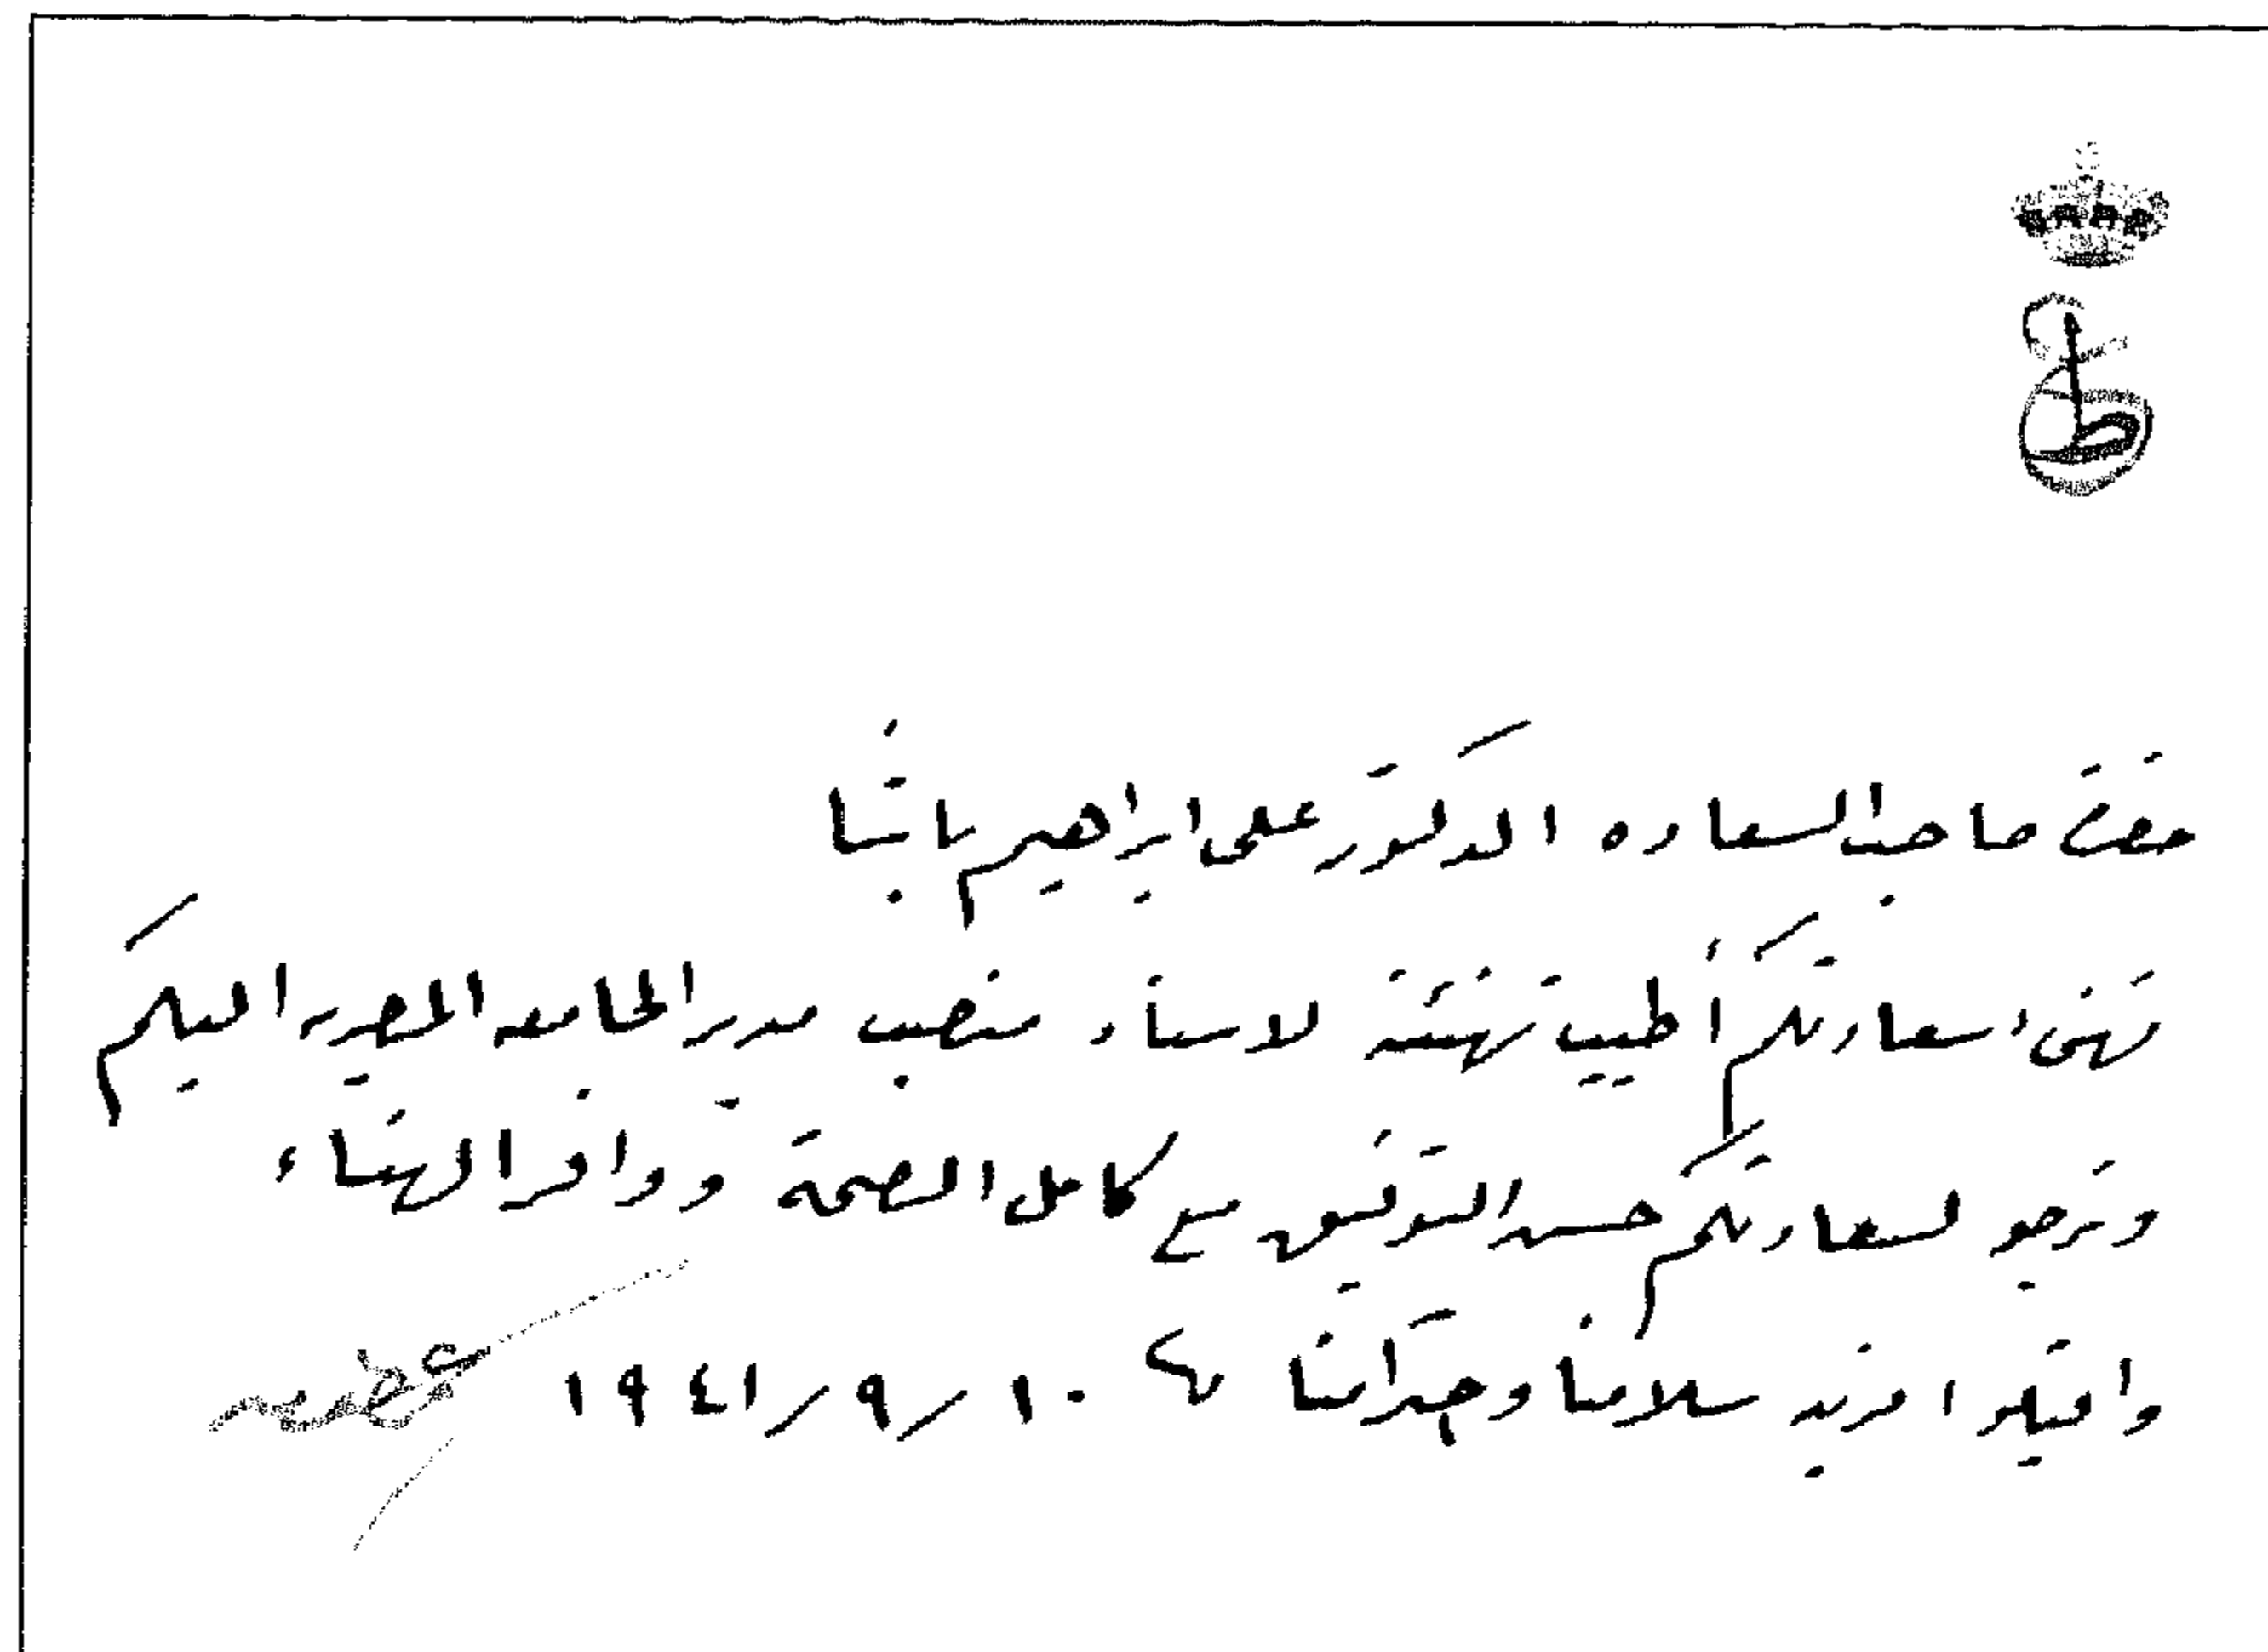 حضرة صاحب السعاده الدكتور على ابراهيم باشا
نهنىء سعادتكم أطيب تهنئة لاسناد منصب مدير الجامعه المصريه اليكم
ونرجو لسعادتكم حسن التوفيق مع كامل الصحة ووافر الهناء
واقبلوا مزيد سلامنا وتحياتنا ١٠ / ٩ / ١٩٤١